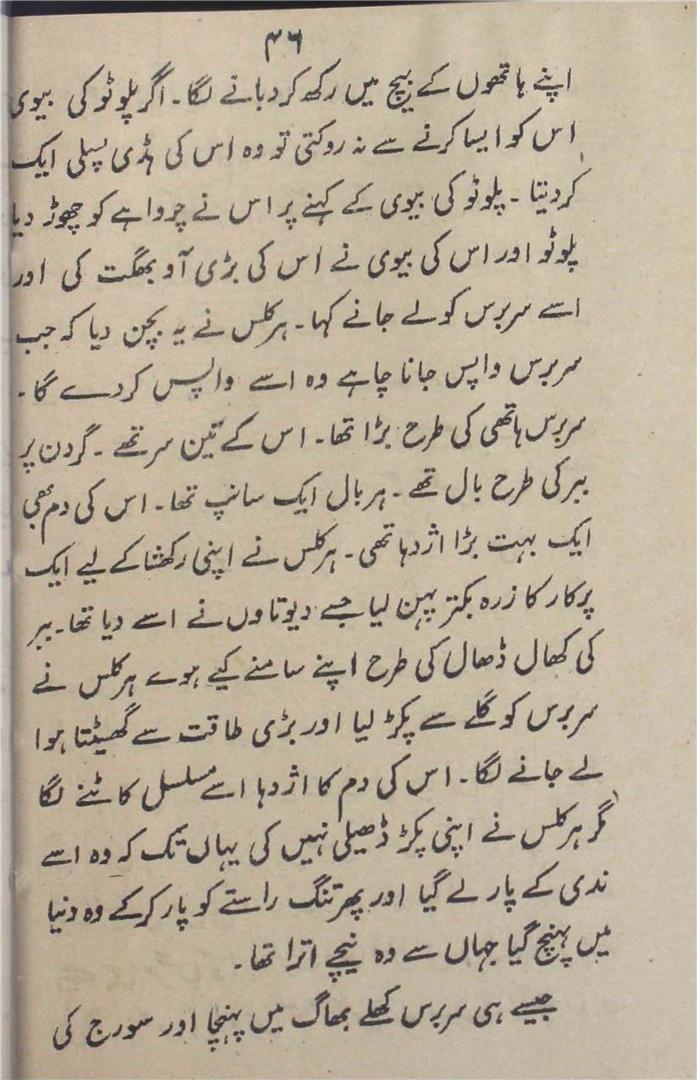 ۴۶
اپنے ہاتھوں کے بیچ میں رکھ کر دبانے لگا۔ اگر پلوٹو کی بیوی
اس کو ایسا کرنے سے نہ روکتی تو وہ اس کی ہڈی پسلی ایک
کر دیتا ۔ پلوٹو کی بیوی کے کہنے پر اس نے چرواہے کو چھوڑ دیا
پلوٹو اور اس کی بیوی نے اس کی بڑی آو بھگت کی اور
اسے سربرس کو لے جانے کہا۔ ہرکلس نے یہ بچن دیا کہ جب
سربرس واپس جانا چاہے وہ اسے واپس کر دے گا۔
سربرس ہاتھی کی طرح بڑا تھا۔ اس کے تین سر تھے ۔ گردن پر
ببر کی طرح بال تھے ۔ ہر بال ایک سانپ تھا۔ اس کی دم بھی
ایک بہت بڑا اژدہا تھی۔ ہرکلس نے اپنی رکھشا کے لیے ایک
پرکار کا زرہ بکتر پہن لیا جسے دیوتاوں نے اسے دیا تھا۔ ببر
کی کھال ڈھال کی طرح اپنے سامنے کیے ہوے ہرکلس نے
سربرس کو گلے سے پکڑ لیا اور بڑی طاقت سے گھسیٹتا ہوا
لے جانے لگا۔ اس کی دم کا اژدہا اسے مسلسل کاٹنے لگا
مگر ہرکلس نے اپنی پکڑ ڈھیلی نہیں کی یہاں تک کہ وہ اسے
ندی کے پار لے گیا اور پھر تنگ راستے کو پار کر کے وہ دنیا
میں پہنچ گیا جہاں سے وہ نیچے اترا تھا۔
جیسے ہی سربرس کھلے بھاگ میں پہنچا اور سورج کی